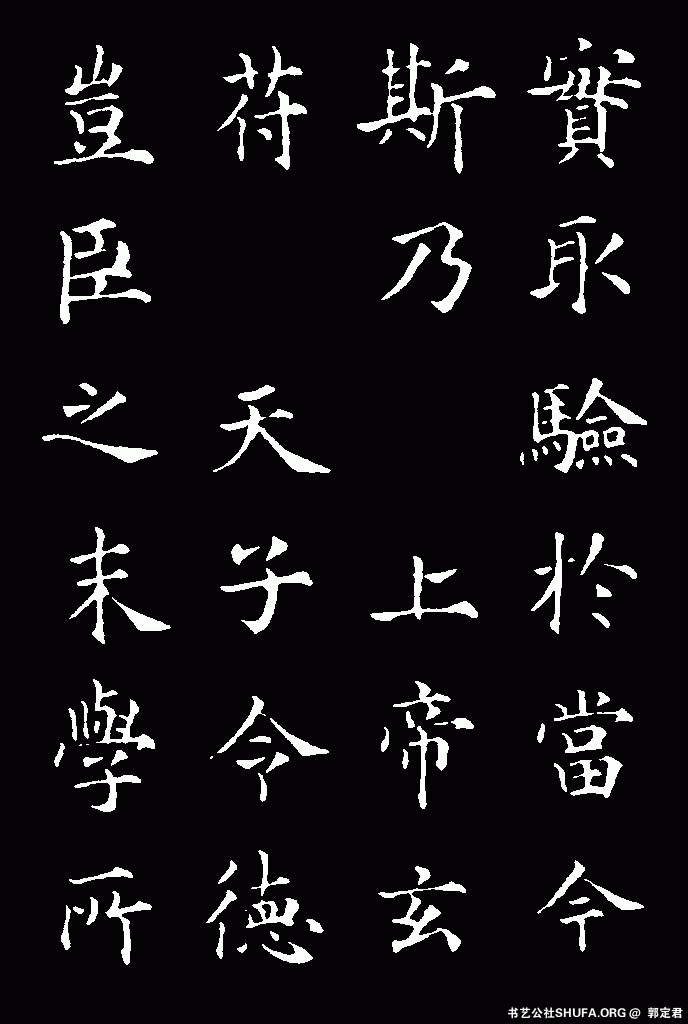 實取驗於當今
斯乃上帝玄
苻天子令德
豈臣之末學所
书艺公社SHUFA.ORG @ 郭定君